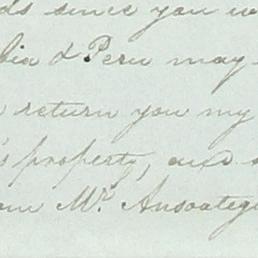 ds since you w
bia & Peru may
return you my
's property, and
om Mr. Ansoategu